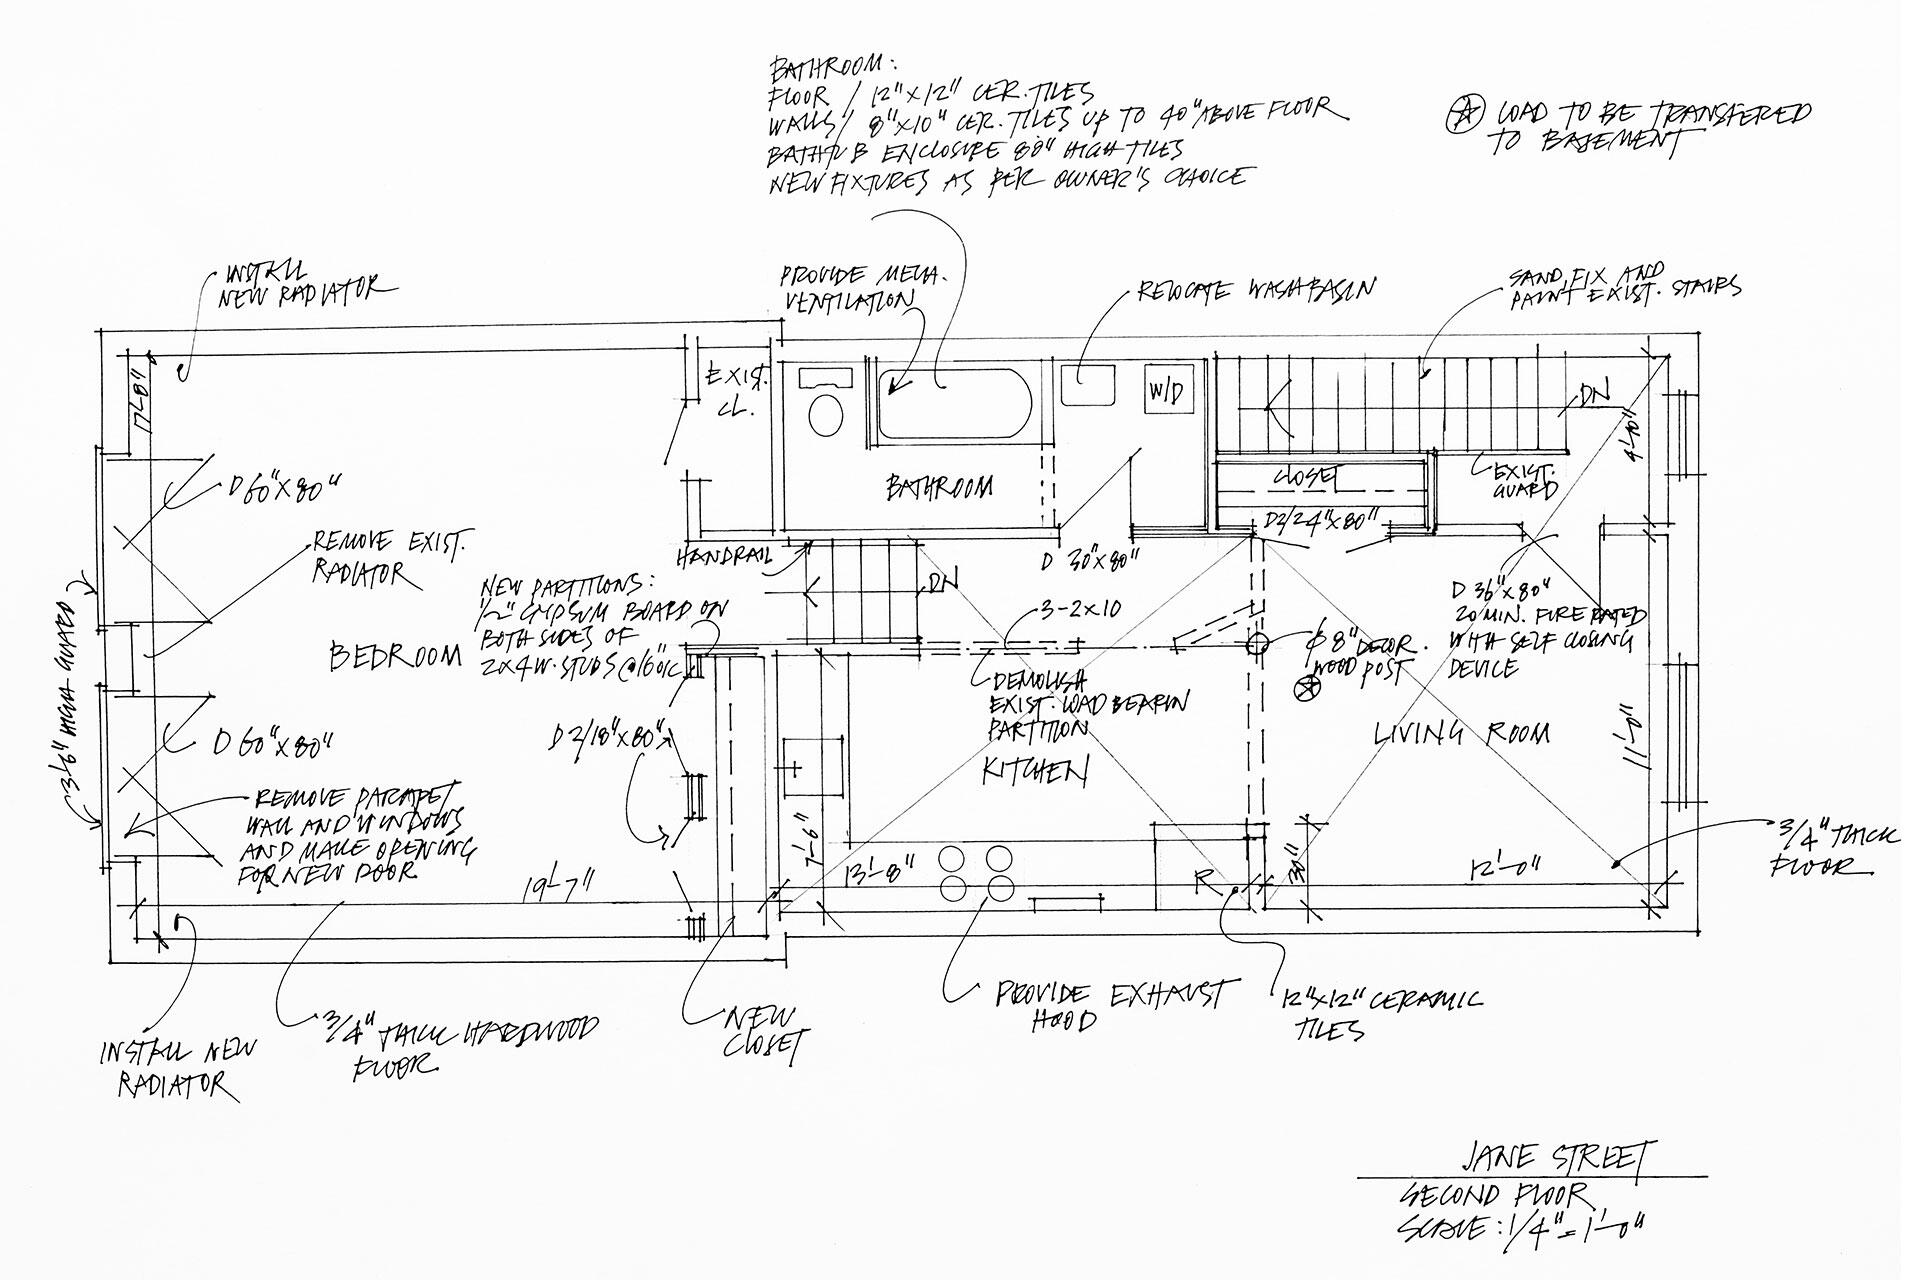 BATHROOM:
FLOOR / 12"X12" CER. TILES
WALLS / 8"X10" CER. TILES UP TO 40" ABOVE FLOOR
BATHTUB ENCLOSURE 80" HIGH TILES
NEW FIXTURES AS PER OWNER'S CHOICE
LOAD TO BE TRANSFERED
TO BASEMENT
INSTALL
NEW RADIATOR
PROVIDE MECH.
VENTILATION
RELOCATE WASHBASIN
SAND, FIX AND
PAINT EXIST. STAIRS
17'-8"
EXIST.
CL.
W/D
DN
4'-10"
D 60"X80"
BATHROOM
CLOSET
EXIST.
GUARD
D2/24"X80"
REMOVE EXIST.
RADIATOR
HANDRAIL
D 30"X80"
3'-6" HIGH GUARD
NEW PARTITIONS:
1/2" GYPSUM BOARD ON
BOTH SIDES OF
2X4 W. STUDS @ 16" O.C.
DN
3-2X10
D 36"X80"
20 MIN. FIRE RATED
WITH SELF CLOSING
DEVICE
BEDROOM
ϕ 8" DECOR.
WOOD POST
DEMOLISH
EXIST. LOAD BEARIN
PARTITION
D 60"X80"
D 2/18"X80"
KITCHEN
LIVING ROOM
11'-0"
REMOVE PARAPET
WALL AND WINDOWS
AND MAKE OPENING
FOR NEW DOOR
7'-6"
3/4" THICK
FLOOR
19'-7"
13'-8"
R
30"
12'-0"
INSTALL NEW
RADIATOR
3/4" THICK HARDWOOD
FLOOR
NEW
CLOSET
PROVIDE EXHAUST
HOOD
12"X12" CERAMIC
TILES
JANE STREET
SECOND FLOOR
SCALE: 1/4" = 1'-0"